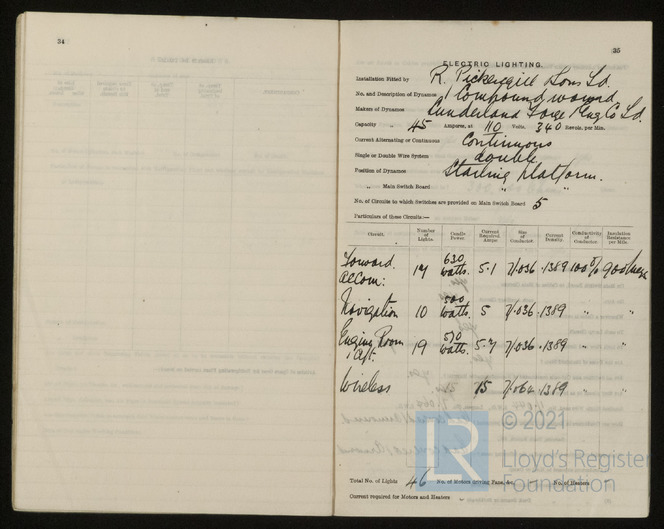 34
35
ELECTRIC LIGHTING.
Installation Fitted by R. Pickersgill Sons Ld.
No. and Description of Dynamos 1 Compound wound
Makers of Dynamos Sunderland Forge Eng Co Ld.
Capacity „ 45 Amperes, at 110 Volts, 340 Revols. per Min.
Current Alternating or Continuous Continuous
Single or Double Wire System double
Position of Dynamos Starting platform.
„ Main Switch Board „ „
No. of Circuits to which Switches are provided on Main Switch Board 5
Particulars of these Circuits:—
Circuit. Number of Lights. Candle Power. Current Required. Amps. Size of Conductor. Current Density. Conductivity of Conductor. Insulation Resistance per Mile.
Forward accom: 17 630 watts. 5.1 7/.036 .1389 100% 900 megs
Navigation 10 500 watts. 5 7/.036 .1389 „ „
Engine Room & Aft. 19 570 watts. 5.7 7/.036 .1389 „ „
Wireless 15 7/.064 .1389 „ „
Total No. of Lights 46 No. of Motors driving Fans, &c. — No. of Heaters
Current required for Motors and Heaters
© 2021
LR
Lloyd's Register
Foundation